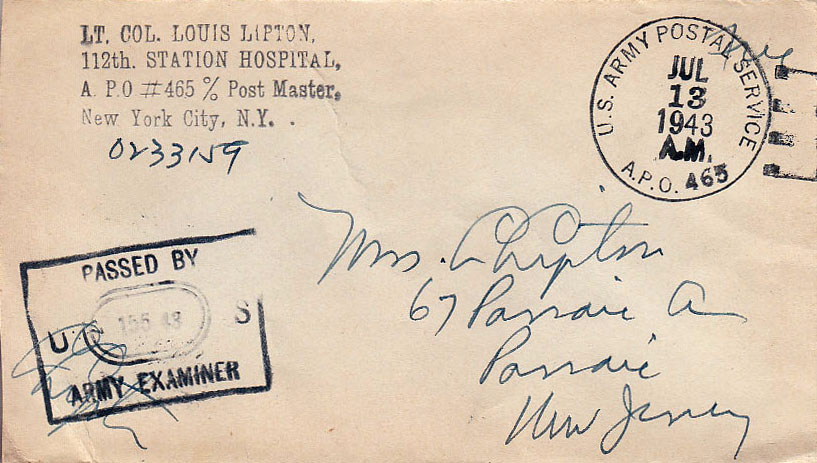 LT. COL. LOUIS LIPTON,
112th. STATION HOSPITAL,
A. P.O #465 % Post Master,
New York City, N.Y. .
0233159
Free
U.S. ARMY POSTAL SERVICE
JUL
13
1943
A.M.
A.P.O. 465
Mrs. A Lipton
67 Passaic A
Passaic
New Jersey
PASSED BY
U S
ARMY EXAMINER